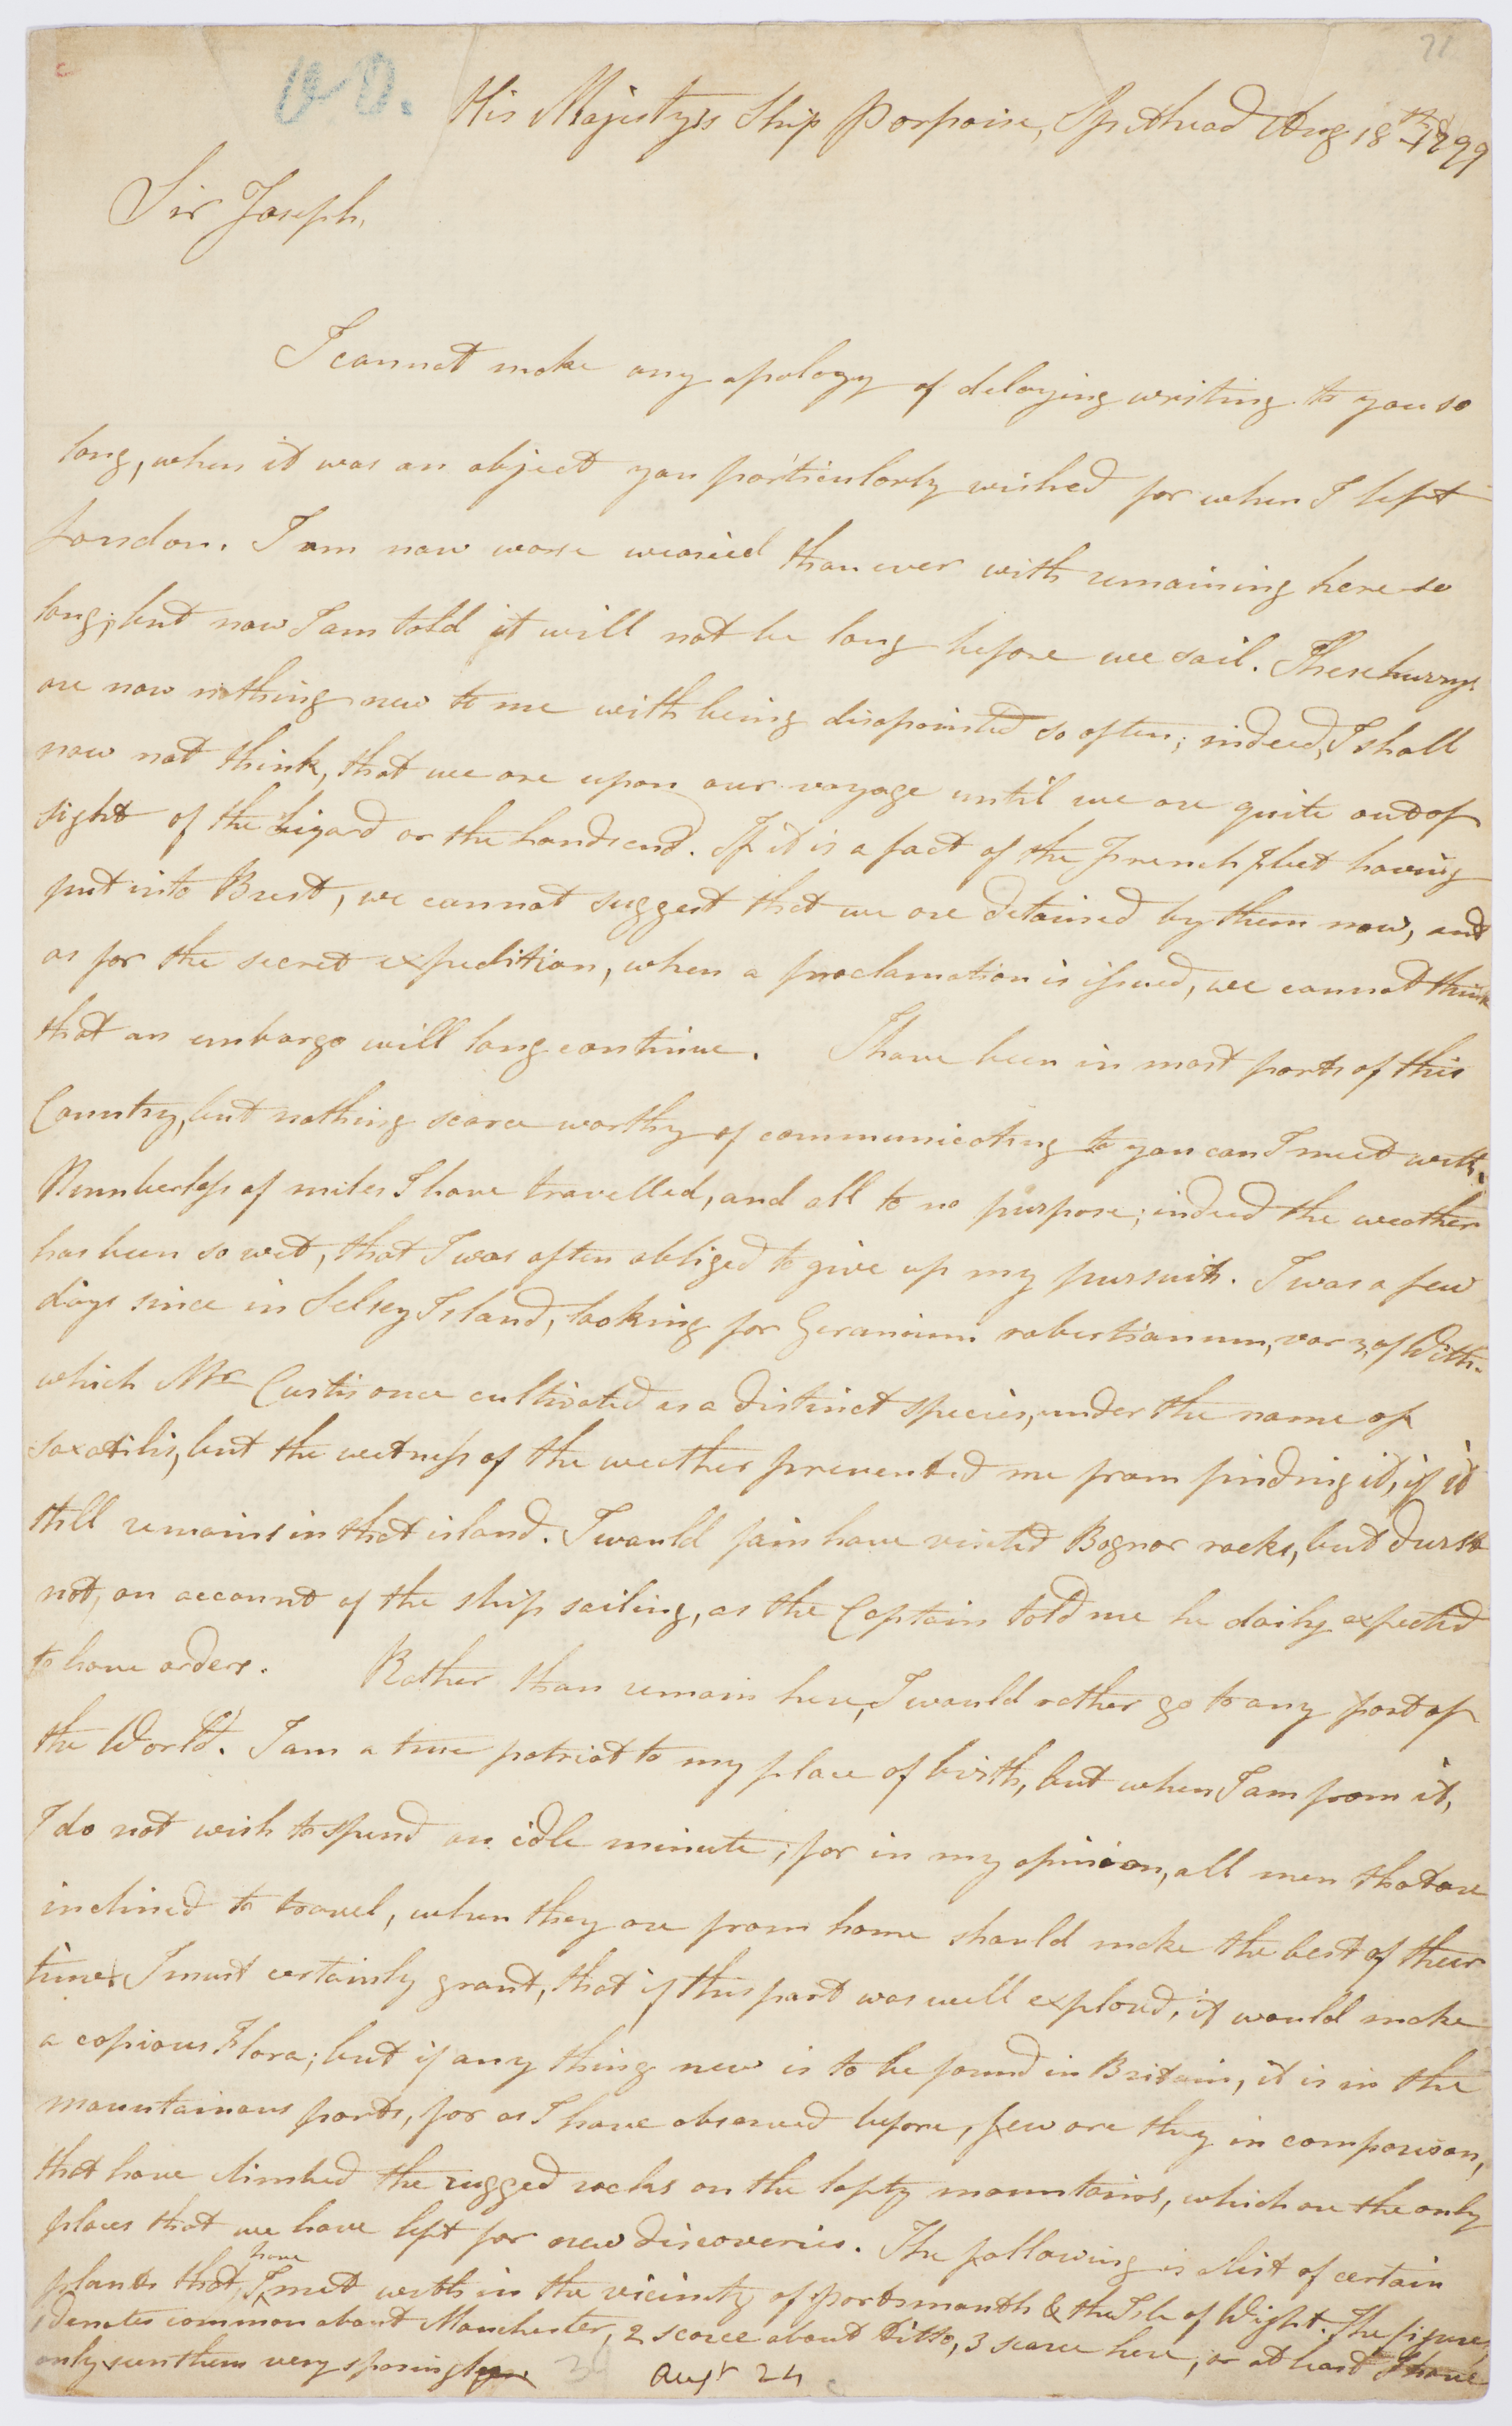 His Majestys Ship Porpoise, Spithead Aug 18th 1799
Sir Joseph,
I cannot make any apology of delaying writing to you so
long, when it was an object you particularly wished for when I left
London. I am now worse wearied than ever with remaining here so
long, but now I am told it will not be long before we sail. These hurrys
are now nothing new to me with being disapointed so often; indeed, I shall
now not think, that we are upon our voyage until we are quite out of
sight of the Lizard or the Landsend. If it is a fact of the French fleet having
put into Brest, we cannot suggest that we are detained by them now, and
as for the secret expedition, when a proclamation is issued, we cannot think
that an embargo will long continue. I have been in most parts of this
Country, but nothing scarce worthy of communicating to you can I meet with.
Numberless of miles I have travelled, and all to no purpose; indeed the weather
has been so wet, that I was often obliged to give up my pursuits. I was a few
days since in Selsey Island, looking for Geranium robertianum, var 3, of With.
which Mr Curtis once cultivated as a distinct species, under the name of
saxatilis, but the wetness of the weather prevented me from finding it, if it
still remains in that island. I would fain have visited Bognor rocks, but durst
not, on account of the ship sailing, as the Captain told me he daily expected
to have orders. Rather than remain here, I would rather go to any part of
the World. I am a true patriot to my place of birth, but when I am from it,
I do not wish to spend an idle minute; for in my opinion, all men that are
inclined to travel, when they are from home should make the best of their
time. I must certainly grant, that if this part was well explored, it would make
a copious Flora; but if any thing new is to be found in Britain, it is in the
mountainous parts, for as I have observed before, few are they in comparison,
that have climbed the rugged rocks on the lofty mountains, which are the only
places that we have left for new discoveries. The following is a list of certain
plants that I have met with in the vicinity of Portsmouth & the Isle of Wight. The figures
1 denotes common about Manchester, 2 scarce about Ditto, 3 scarce here, or at least I have
only seen them very sparingly.
Augt 24